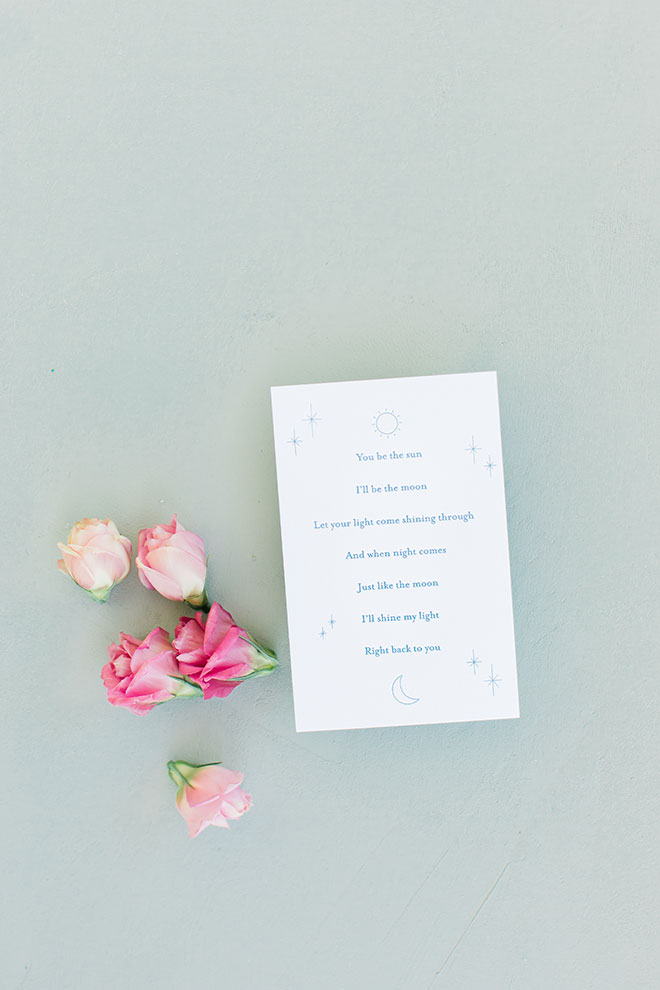 You be the sun
I'll be the moon
Let your light come shining through
And when night comes
Just like the moon
I'll shine my light
Right back to you